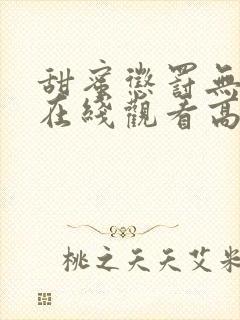 甜蜜懲罰無
在綫觀看高
桃之夭夭艾米